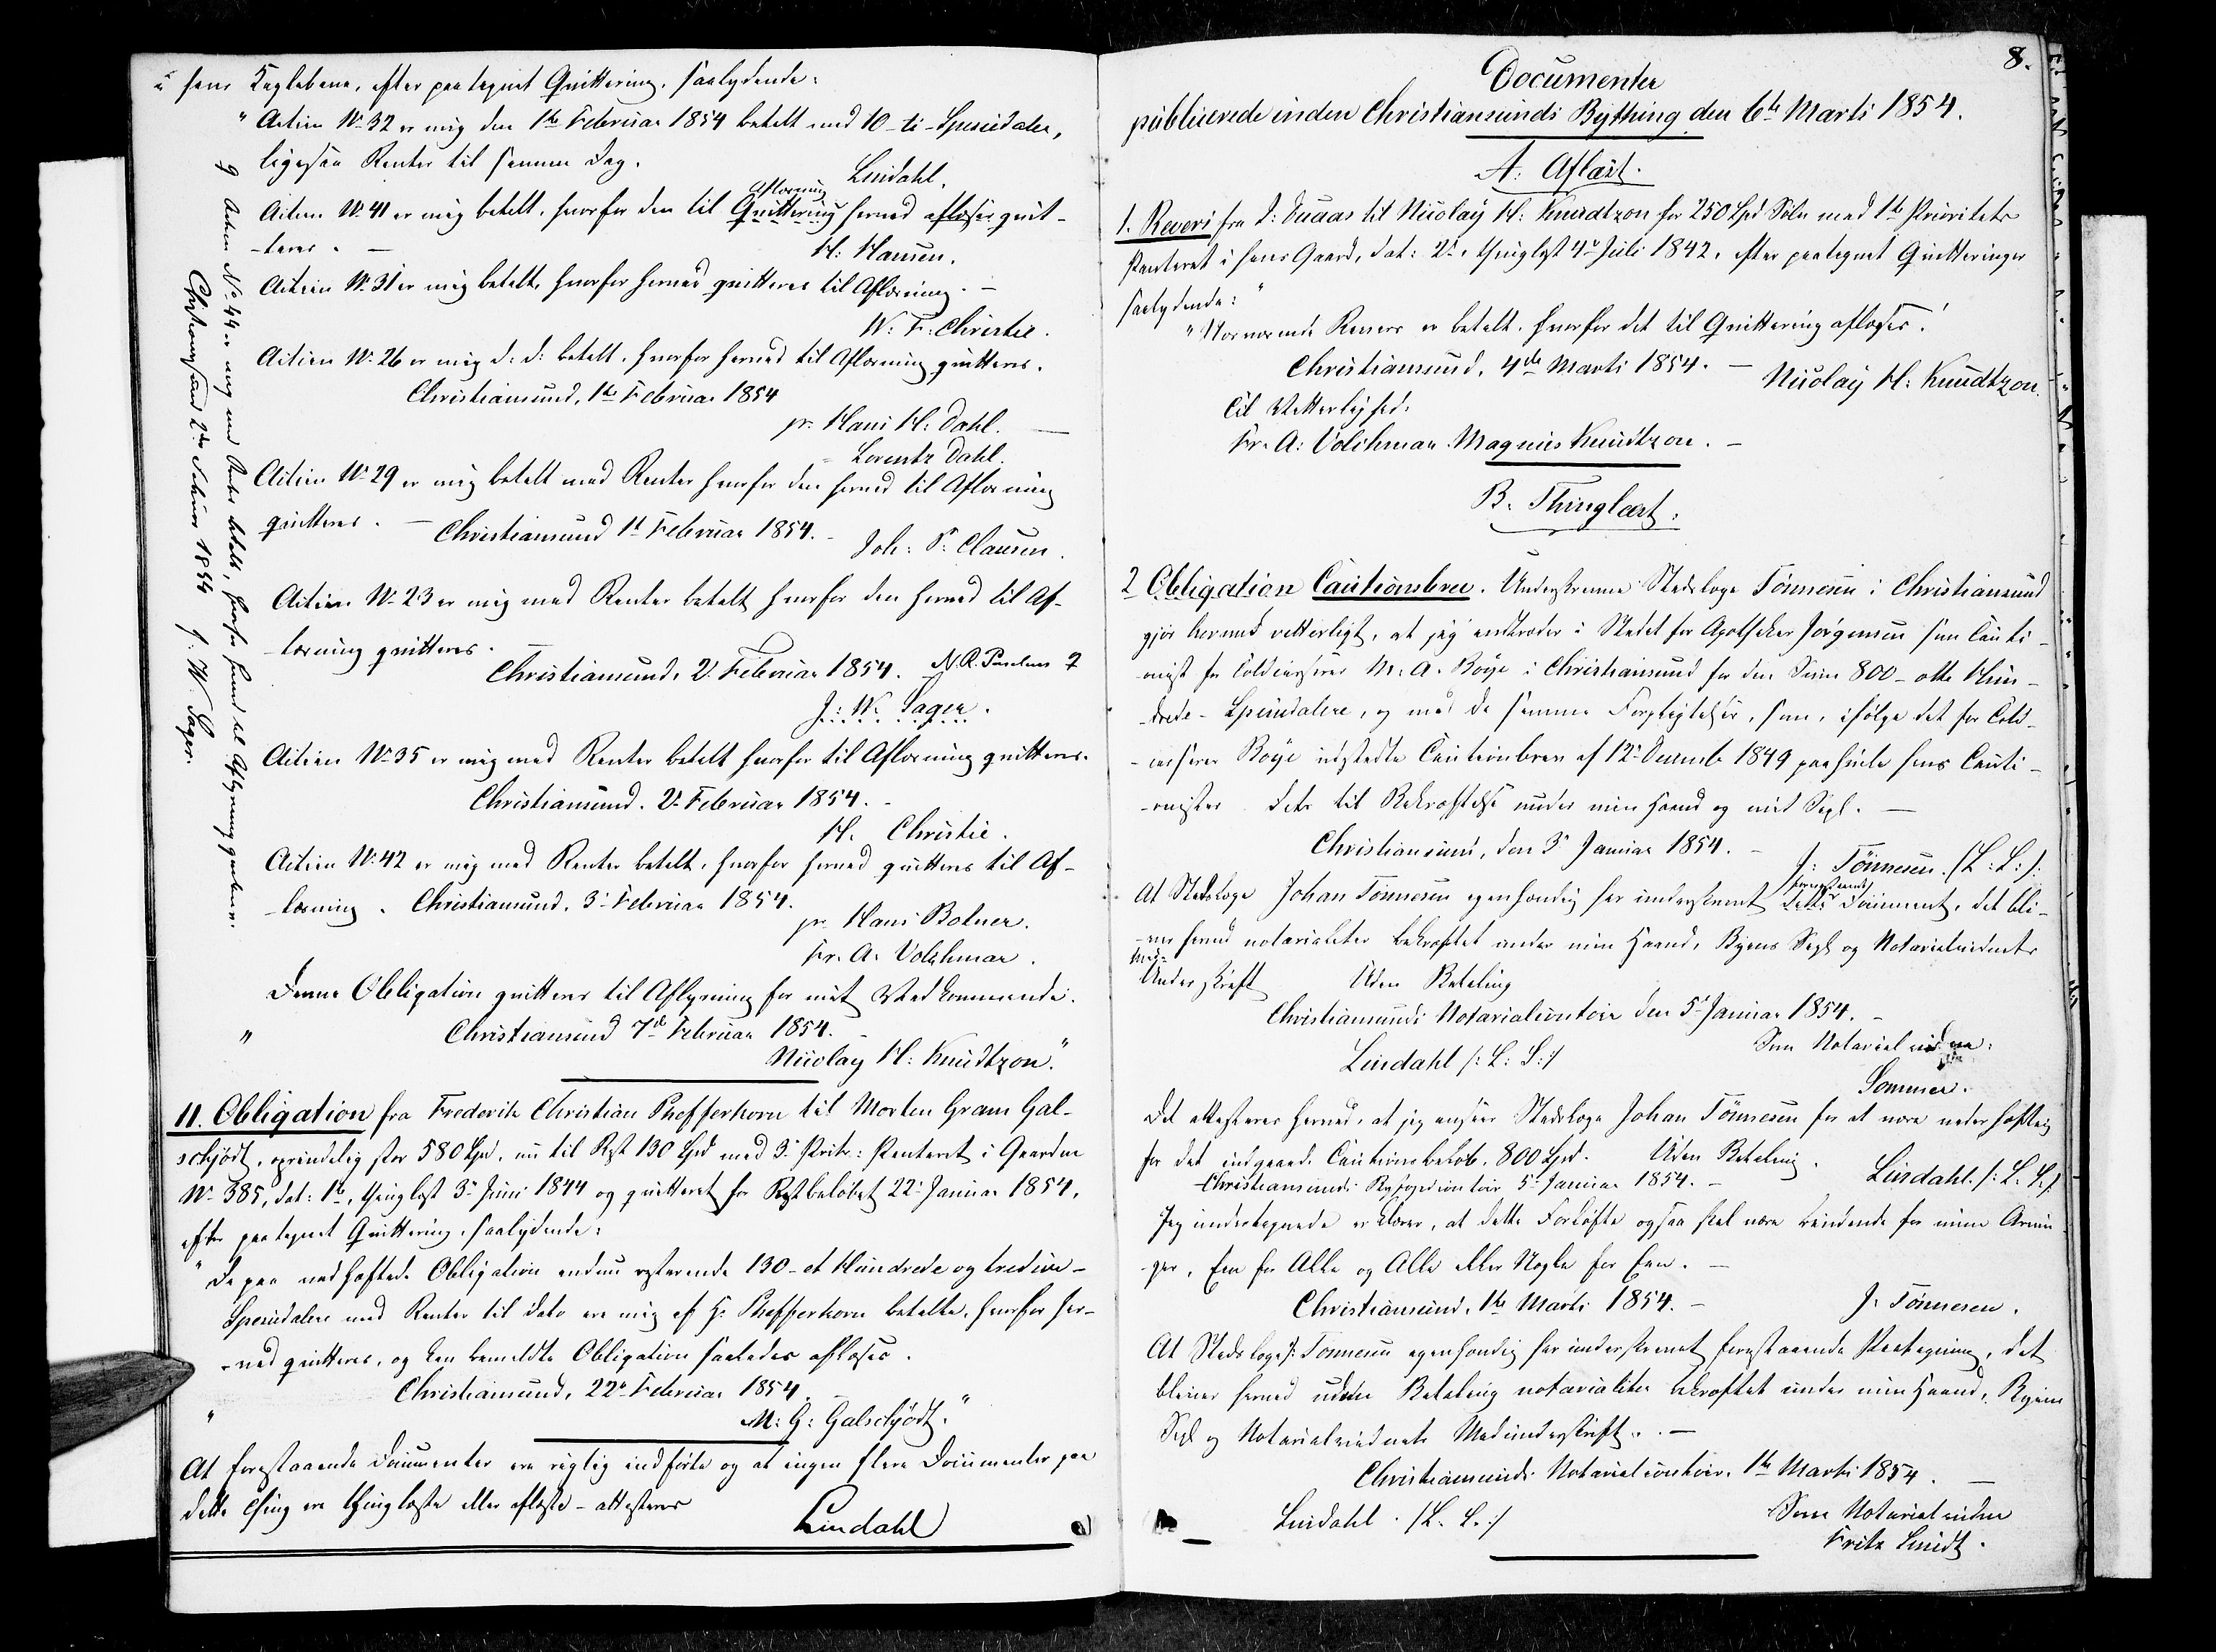 i hans Keglebane, efter paategnet Quittering, saalydende:
"Actien No 32 er mig den 1ste Februar 1854 betalt med 10 - ti - Speciedaler,
ligesaa Renter til samme Dag.
Lindahl.
Actien No 41 er mig betalt, hvorfor den til Quittering Aflæsning herved aflæses quit-
-teres. -
H: Hansen.
Actien No 31 er mig betalt, hvorfor herved quitteres til Aflæsning. -
W: F: Christie.
Actien No 26 er mig d: d: betalt, hvorfor herved til Aflæsning quitteres.
Christiansund, 1ste Februar 1854
pr. Hans H: Dahl. -
Lorentz Dahl.
Actien No 29 er mig betalt med Renter hvorfor den herved til Aflæsning
quitteres. - Christiansund 1ste Februar 1854. -
Joh: P: Clausen.
Actien No 23 er mig med Renter betalt hvorfor den herved til Af-
-læsning quitteres. -
Christiansund, 2. Februar 1854. N. R.
J: W. Sager.
Actien No 35 er mig med Renter betalt hvorfor til Aflæsning quitteres.
Christiansund. 2. Februar 1854. -
H. Christie.
Actien No 42 er mig med Renter betalt, hvorfor herved quitteres til Af-
-læsning. Christiansund. 3. Februar 1854.
pr. Hans Botner.
Fr. A. Volckmar.
Denne Obligation quitteres til Aflysning for mit Vedkommende.
" Christiansund 7de Februar 1854. -
Nicolay H: Knudtzon."
Actien No 44 er mig med Renter betalt, hvorfor herved til Aflysning quitteres.
Christiansund 2den Februar 1854 J. W. Sager.
11. Obligation fra Frederik Christian Pfefferkorn til Morten Gram Gal-
schjødt, oprindelig stor 580 Spd, nu til Rest 130 Spd med 3. Prit: Panteret i Gaarden
No 385, dat: 1ste, thinglæst 3. Juni 1844 og quitteret for Restbeløbet 22. Januar 1854,
efter paategnet Quittering, saalydende:
"De paa vedhæftede Obligation endnu resterende 130 - et Hundrede og tredive -
Speciedalere med Renter til dato ere mig af Hr Pfefferkorn betalte, hvorfor her-
-ved quitteres, og kan bemeldte Obligation saaledes aflæses.
Christiansund, 22. Februar 1854. -
" M: G: Galschjødt."
At forestaaende Documenter ere rigtig indførte og at ingen flere Documenter paa
dette Thing ere thinglæste eller aflæste - attesteres
Lindahl
8.
Documenter
publicerede inden Christiansunds Bything den 6te Marts 1854.
A. Aflæst.
1. Revers fra D: Duaas til Nicolay H: Knudtzon for 250 Spd Sølv med 1ste Prioritets
Panteret i hans Gaard, dat: 2., thinglæst 4. Juli 1842, efter paategnet Quitteringer
saalydende:"
"Nærværende Revers er betalt, hvorfor det til Quittering aflæses.
Christiansund, 4de Marts 1854. -
Nicolay H: Knudtzon.
Til Vitterlighed:
Fr. A: Volckmar Magnus Knudtzon. -
B. Thinglæst.
2 Obligation Cautionsbrev. Underskrevne Stadsloge Tönnesen i Christiansund
gjør herved vitterligt, at jeg indtræder i Stedet for Apotheker Jörgensen som Cauti-
-onist for Toldcasserer M: A. Böye i Christiansund for den Sum 800 - otte Hun-
-drede - Speciedalere, og med de samme Forpligtelser, som, ifølge det for Told-
-casserer Böye udstedte Cautionsbrev af 12. Decembr 1849 paahvile hans Cauti-
-onister. Dette til Bekræftelse under min Haand og mit Segl. -
Christiansund, den 3. Januar 1854. -
J: Tönnesen. (L: S:).
At Stadsloge Johan Tönnesen egenhændig har underskrevet dette forestaaende Document, det bli-
-ver herved notarialiter bekræftet under min Haand, Byens Segl og Notarialvidnets
Med-
Underskrift Uden Betaling
Christiansunds Notarialcontoir den 5. Januar 1854. -
Lindahl /: L: S:/
Som Notarialvidne:
Sommer.
Det attesteres herved, at jeg anseer Stadsloge Johan Tönnesen for at være vederhæftig
for det indgaaede Cautionsbeløb, 800 Spd. Uden Betaling.
Christiansunds Byfogedcontoir 5. Januar 1854. -
Lindahl. /: L. S.:/
Jeg undertegnede erklærer, at dette Forløfte ogsaa skal være bindende for mine Arvin-
-ger, Een for Alle og Alle eller Nogle for Een. -
Christiansund, 1ste Marts 1854. -
J. Tönnesen.
At Stadsloge J: Tönnesen egenhændig har underskrevet forestaaende Paategning, det
bliver herved uden Betaling notarialiter bekræftet under min Haand, Byens
Segl og Notarialvidnets Medunderskrift. -
Christiansunds Notarialcontoir, 1ste Marts 1854. -
Lindahl. /L. S.:/
Som Notarialvidne
Fritz Smidt.